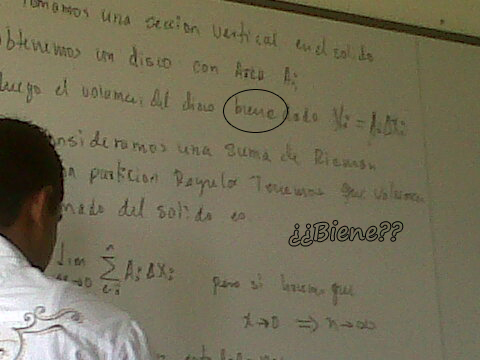 Tomamos una sección vertical en el solido
obtenemos un disco con Area Aᵢ
luego el volumen del disco biene dado Vᵢ = AᵢΔxᵢ
consideramos una suma de Rieman
particion Regular Tenemos que volumen
del solido es
¿¡Biene??
lim Σ Aᵢ Δxᵢ pero si que
→0 ⇒ n→∞